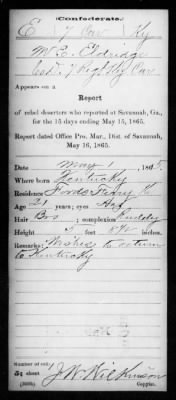 Confederate.
E 7 Cav Ky
W. E. Eldridge
Co. 7 Regt Ky Cav
Appears on a
Report
of rebel deserters who reported at Savannah, Ga.,
for the 15 days ending May 15, 1865.
Report dated Office Pro. Mar., Dist. of Savannah,
May 16, 1865.
Date May 1, 1865.
Where born Kentucky
Residence Fords Ferry
Age 21 years; eyes
Hair Bro; complexion Ruddy
Height 5 feet 8½ inches.
Remarks: Wishes to return
to Kentucky
Number of roll:
sheet
J. W. Wilkinson
Copyist.